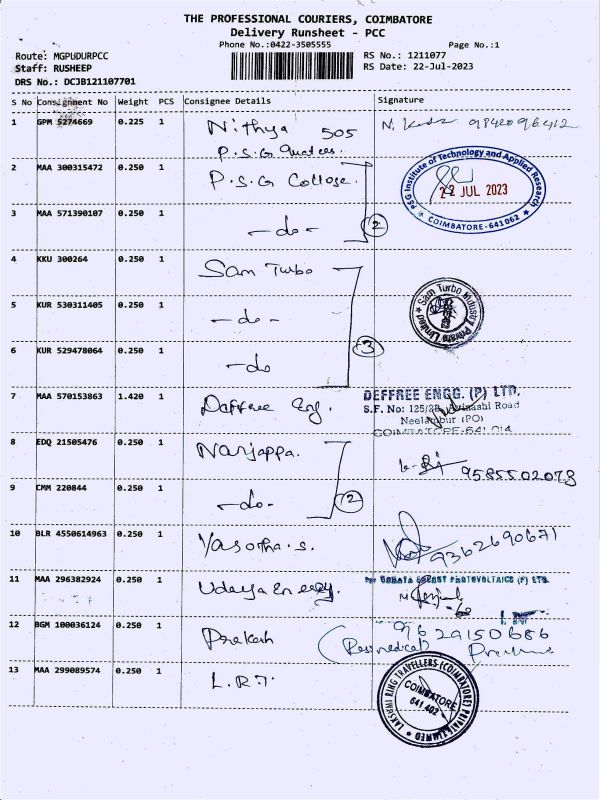 THE PROFESSIONAL COURIERS, COIMBATORE
Delivery Runsheet - PCC
Phone No.:0422-3505555
Page No.:1
Route: MGPUDURPCC
RS No.: 1211077
Staff: RUSHEEP
RS Date: 22-Jul-2023
DRS No.: DCJB121107701
S No Consignment No Weight PCS Consignee Details Signature
1 GPM 5274669 0.225 1 Nithya 505
P.S.G Quarters.
2 MAA 300315472 0.250 1 P.S.G College.
PSG Institute of Technology and Applied Research
22 JUL 2023
* COIMBATORE-641062 *
3 MAA 571390107 0.250 1 -do- 2
4 KKU 300264 0.250 1 Sam Turbo
Sam Turbo Industry Private Limited
5 KUR 530311405 0.250 1 -do-
6 KUR 529478064 0.250 1 -do 3
7 MAA 570153863 1.420 1 Deffree Eng.
DEFFREE ENGG. (P) LTD.
S.F. No: Avinashi Road
Neelambur (PO)
COIMBATORE-641 014
8 EDQ 21505476 0.250 1 Nanjappa.
9585502078
9 CMM 220844 0.250 1 -do- 2
10 BLR 4550614963 0.250 1 Yasotha.s. 9362690671
11 MAA 296382924 0.250 1 Udaya Energy.
PHOTOVOLTAICS (P) LTD.
12 BGM 100036124 0.250 1 Prakash 9629150686
13 MAA 299089574 0.250 1 L.R.T.
LAKSHMI RING TRAVELLERS (COIMBATORE) PRIVATE LIMITED
COIMBATORE
641 402